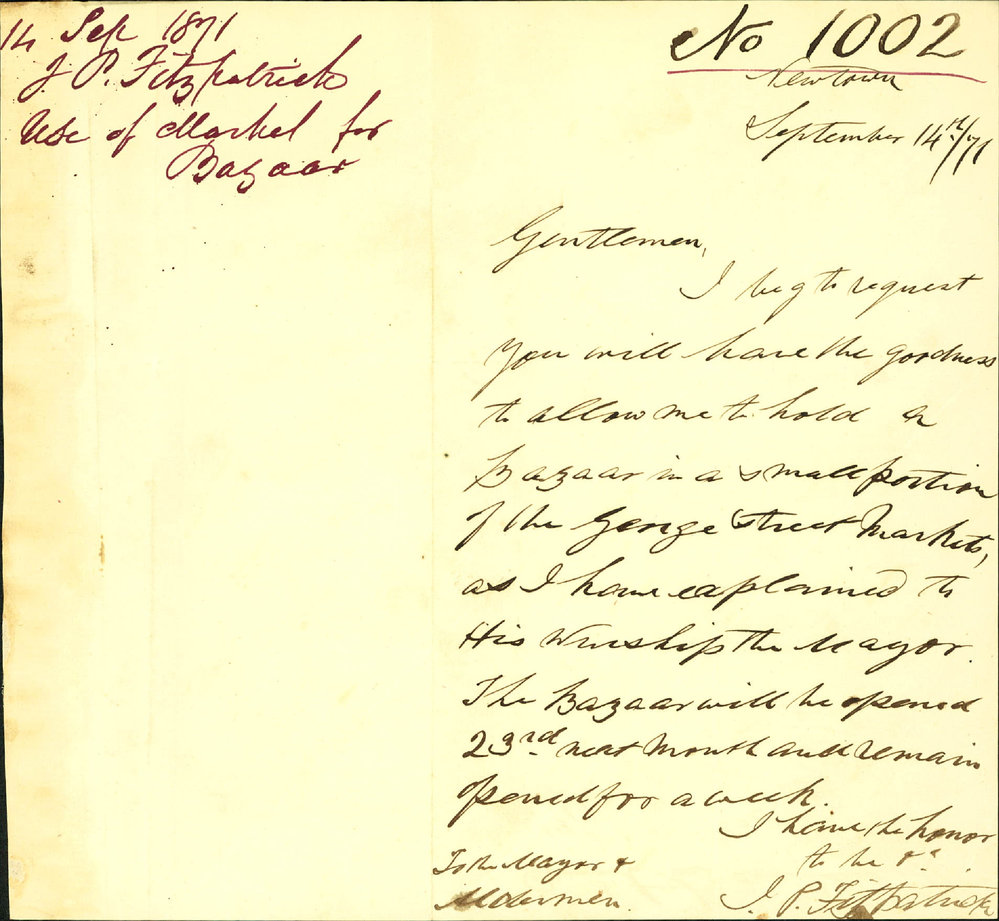 14 Sep 1871
J. P. Fitzpatrick
Use of Market for
Bazaar
No 1002
Newtown
September 14th/71
Gentlemen,
I beg to request
you will have the goodness
to allow me to hold a
Bazaar in a small portion
of the George Street Markets,
as I have explained to
His Worship the Mayor.
The Bazaar will be opened
23rd next month and remain
opened for a week.
I have the honor
to be &c
J. P. Fitzpatrick
To the Mayor &
Aldermen.